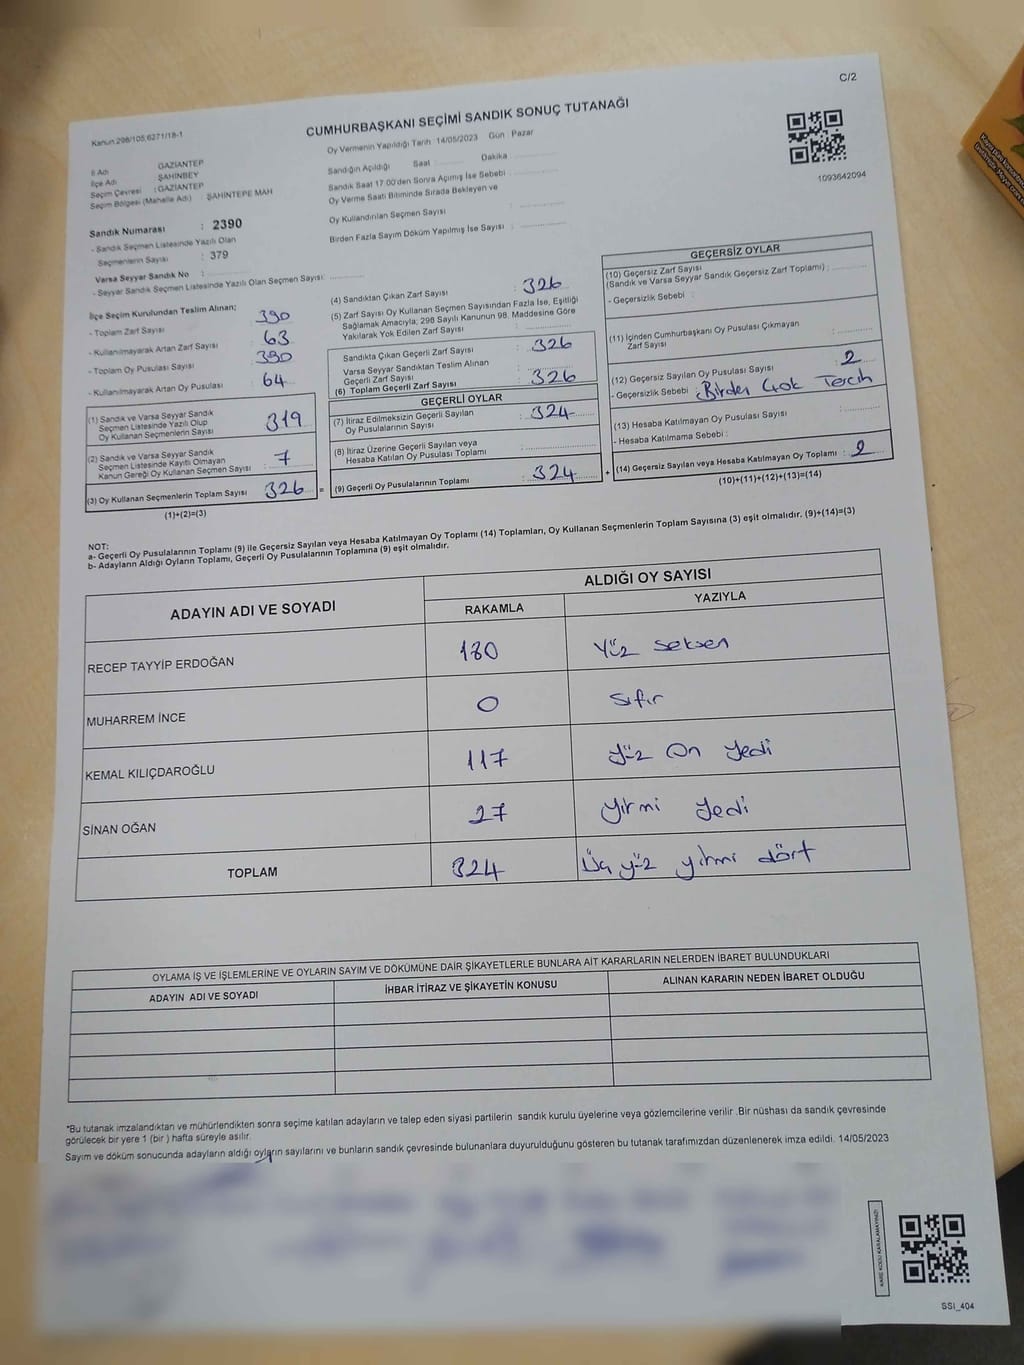 C/2
Kanun 298/105,6271/18-1
CUMHURBAŞKANI SEÇİMİ SANDIK SONUÇ TUTANAĞI
1093642094
İl Adı GAZİANTEP
İlçe Adı ŞAHİNBEY
Seçim Çevresi : GAZİANTEP
Seçim Bölgesi (Mahalle Adı) : ŞAHİNTEPE MAH
Sandık Numarası : 2390
- Sandık Seçmen Listesinde Yazılı Olan
Seçmenlerin Sayısı : 379
Varsa Seyyar Sandık No :
- Seyyar Sandık Seçmen Listesinde Yazılı Olan Seçmen Sayısı:
Oy Vermenin Yapıldığı Tarih 14/05/2023 Gün Pazar
Sandığın Açıldığı Saat Dakika
Sandık Saat 17.00'den Sonra Açımış İse Sebebi
Oy Verme Saati Bitiminde Sırada Bekleyen ve
Oy Kullandırılan Seçmen Sayısı :
Birden Fazla Sayım Döküm Yapılmış İse Sayısı :
İlçe Seçim Kurulundan Teslim Alınan;
- Toplam Zarf Sayısı 390
- Kullanılmayarak Artan Zarf Sayısı 63
- Toplam Oy Pusulası Sayısı 390
- Kullanılmayarak Artan Oy Pusulası 64
(1) Sandık ve Varsa Seyyar Sandık
Seçmen Listesinde Yazılı Olup
Oy Kullanan Seçmenlerin Sayısı 319
(2) Sandık ve Varsa Seyyar Sandık
Seçmen Listesinde Kayıtlı Olmayan
Kanun Gereği Oy Kullanan Seçmen Sayısı : 7
(3) Oy Kullanan Seçmenlerin Toplam Sayısı 326 =
(1)+(2)=(3)
(4) Sandıktan Çıkan Zarf Sayısı : 326
(5) Zarf Sayısı Oy Kullanan Seçmen Sayısından Fazla İse, Eşitliği
Sağlamak Amacıyla; 298 Sayılı Kanunun 98. Maddesine Göre
Yakılarak Yok Edilen Zarf Sayısı :
Sandıkta Çıkan Geçerli Zarf Sayısı : 326
Varsa Seyyar Sandıktan Teslim Alınan
Geçerli Zarf Sayısı :
(6) Toplam Geçerli Zarf Sayısı : 326
GEÇERLİ OYLAR
(7) İtiraz Edilmeksizin Geçerli Sayılan
Oy Pusulalarının Sayısı : 324
(8) İtiraz Üzerine Geçerli Sayılan veya
Hesaba Katılan Oy Pusulası Toplamı :
(9) Geçerli Oy Pusulalarının Toplamı : 324 +
GEÇERSİZ OYLAR
(10) Geçersiz Zarf Sayısı
(Sandık ve Varsa Seyyar Sandık Geçersiz Zarf Toplamı) :
- Geçersizlik Sebebi :
(11) İçinden Cumhurbaşkanı Oy Pusulası Çıkmayan
Zarf Sayısı :
(12) Geçersiz Sayılan Oy Pusulası Sayısı : 2
- Geçersizlik Sebebi : Birden Çok Tercih
(13) Hesaba Katılmayan Oy Pusulası Sayısı :
- Hesaba Katılmama Sebebi :
(14) Geçersiz Sayılan veya Hesaba Katılmayan Oy Toplamı : 2
(10)+(11)+(12)+(13)=(14)
NOT:
a- Geçerli Oy Pusulalarının Toplamı (9) ile Geçersiz Sayılan veya Hesaba Katılmayan Oy Toplamı (14) Toplamları, Oy Kullanan Seçmenlerin Toplam Sayısına (3) eşit olmalıdır. (9)+(14)=(3)
b- Adayların Aldığı Oyların Toplamı, Geçerli Oy Pusulalarının Toplamına (9) eşit olmalıdır.
ADAYIN ADI VE SOYADI ALDIĞI OY SAYISI
RAKAMLA YAZIYLA
RECEP TAYYİP ERDOĞAN 180 Yüz seksen
MUHARREM İNCE 0 Sıfır
KEMAL KILIÇDAROĞLU 117 Yüz On Yedi
SİNAN OĞAN 27 Yirmi Yedi
TOPLAM 324 Üç yüz yirmi dört
OYLAMA İŞ VE İŞLEMLERİNE VE OYLARIN SAYIM VE DÖKÜMÜNE DAİR ŞİKAYETLERLE BUNLARA AİT KARARLARIN NELERDEN İBARET BULUNDUKLARI
ADAYIN ADI VE SOYADI İHBAR İTİRAZ VE ŞİKAYETİN KONUSU ALINAN KARARIN NEDEN İBARET OLDUĞU
*Bu tutanak imzalandıktan ve mühürlendikten sonra seçime katılan adayların ve talep eden siyasi partilerin sandık kurulu üyelerine veya gözlemcilerine verilir .Bir nüshası da sandık çevresinde
görülecek bir yere 1 (bir ) hafta süreyle asılır.
Sayım ve döküm sonucunda adayların aldığı oyların sayılarını ve bunların sandık çevresinde bulunanlara duyurulduğunu gösteren bu tutanak tarafımızdan düzenlenerek imza edildi. 14/05/2023
KARE KODU KARALAMAYINIZ!
SSI_404